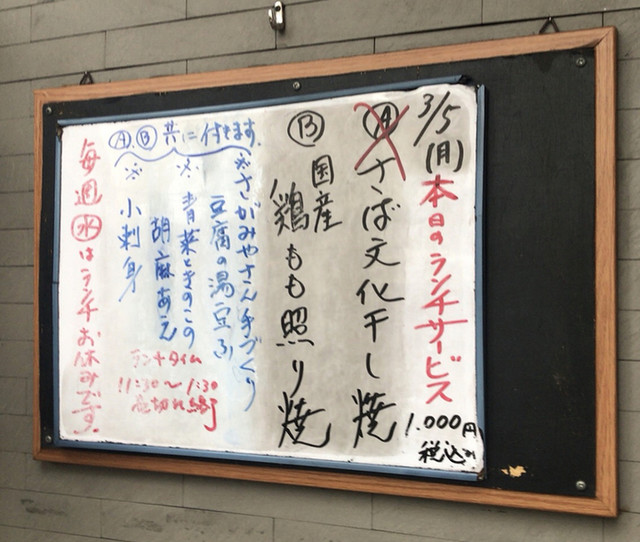 3/5(月)本日のランチサービス
1.000円
税込み
Ⓐさば文化干し焼
Ⓑ国産鶏もも照り焼
Ⓐ.Ⓑ共に付きます。
※さがみやさん手づくり
豆腐の湯豆ふ
※青菜ときのこの
胡麻あえ
※小刺身
ランチタイム
11:30〜1:30
売切れ終了
毎週㊌はランチお休みです。